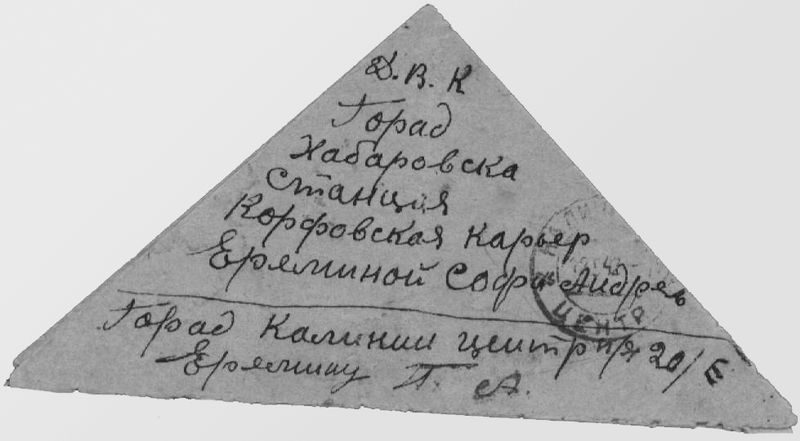 Д. В. К
Горад
Хабаровска
станция
Корфовская карьер
Еряминой Софи Андрев
Горад Калинин центр п/я 20/Е
Ерямину П. А.
ЦЕНТР